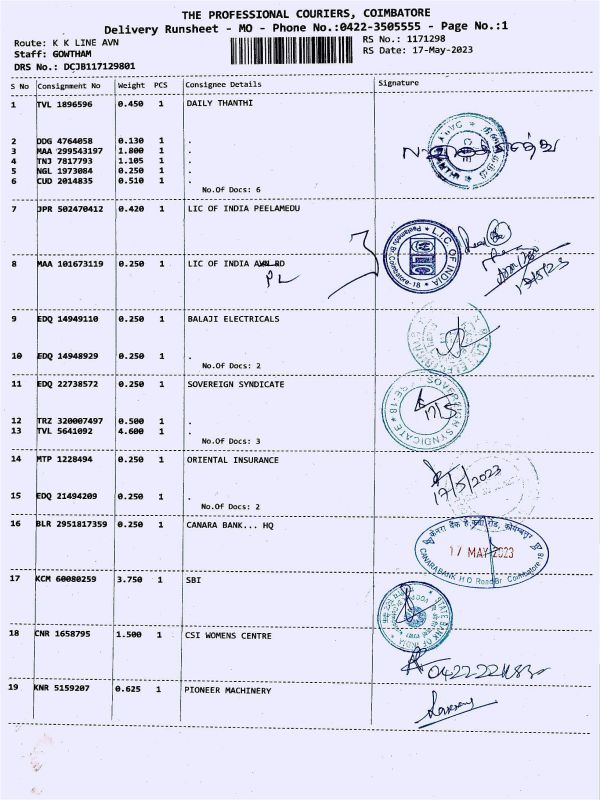 THE PROFESSIONAL COURIERS, COIMBATORE
Delivery Runsheet - MO - Phone No.:0422-3505555 - Page No.:1
Route: K K LINE AVN
RS No.: 1171298
Staff: GOWTHAM
RS Date: 17-May-2023
DRS No.: DCJB117129801
S No Consignment No Weight PCS Consignee Details Signature
1 TVL 1896596 0.450 1 DAILY THANTHI
2 DDG 4764058 0.130 1 .
3 MAA 299543197 1.800 1 .
4 TNJ 7817793 1.105 1 .
5 NGL 1973084 0.250 1 .
6 CUD 2014835 0.510 1 .
No.Of Docs: 6
7 JPR 502470412 0.420 1 LIC OF INDIA PEELAMEDU
LIC OF INDIA
Peelamedu Br. Coimbatore-18
8 MAA 101673119 0.250 1 LIC OF INDIA AVN RD
PL
9 EDQ 14949110 0.250 1 BALAJI ELECTRICALS
10 EDQ 14948929 0.250 1 .
No.Of Docs: 2
11 EDQ 22738572 0.250 1 SOVEREIGN SYNDICATE
SOVEREIGN SYNDICATE
12 TRZ 320007497 0.500 1 .
13 TVL 5641092 4.600 1 .
No.Of Docs: 3
14 MTP 1228494 0.250 1 ORIENTAL INSURANCE
17/5/2023
15 EDQ 21494209 0.250 1 .
No.Of Docs: 2
16 BLR 2951817359 0.250 1 CANARA BANK... HQ
17 MAY 2023
CANARA BANK H O Road Br Coimbatore 18
17 KCM 60080259 3.750 1 SBI
STATE BANK OF INDIA
18 CNR 1658795 1.500 1 CSI WOMENS CENTRE
19 KNR 5159207 0.625 1 PIONEER MACHINERY